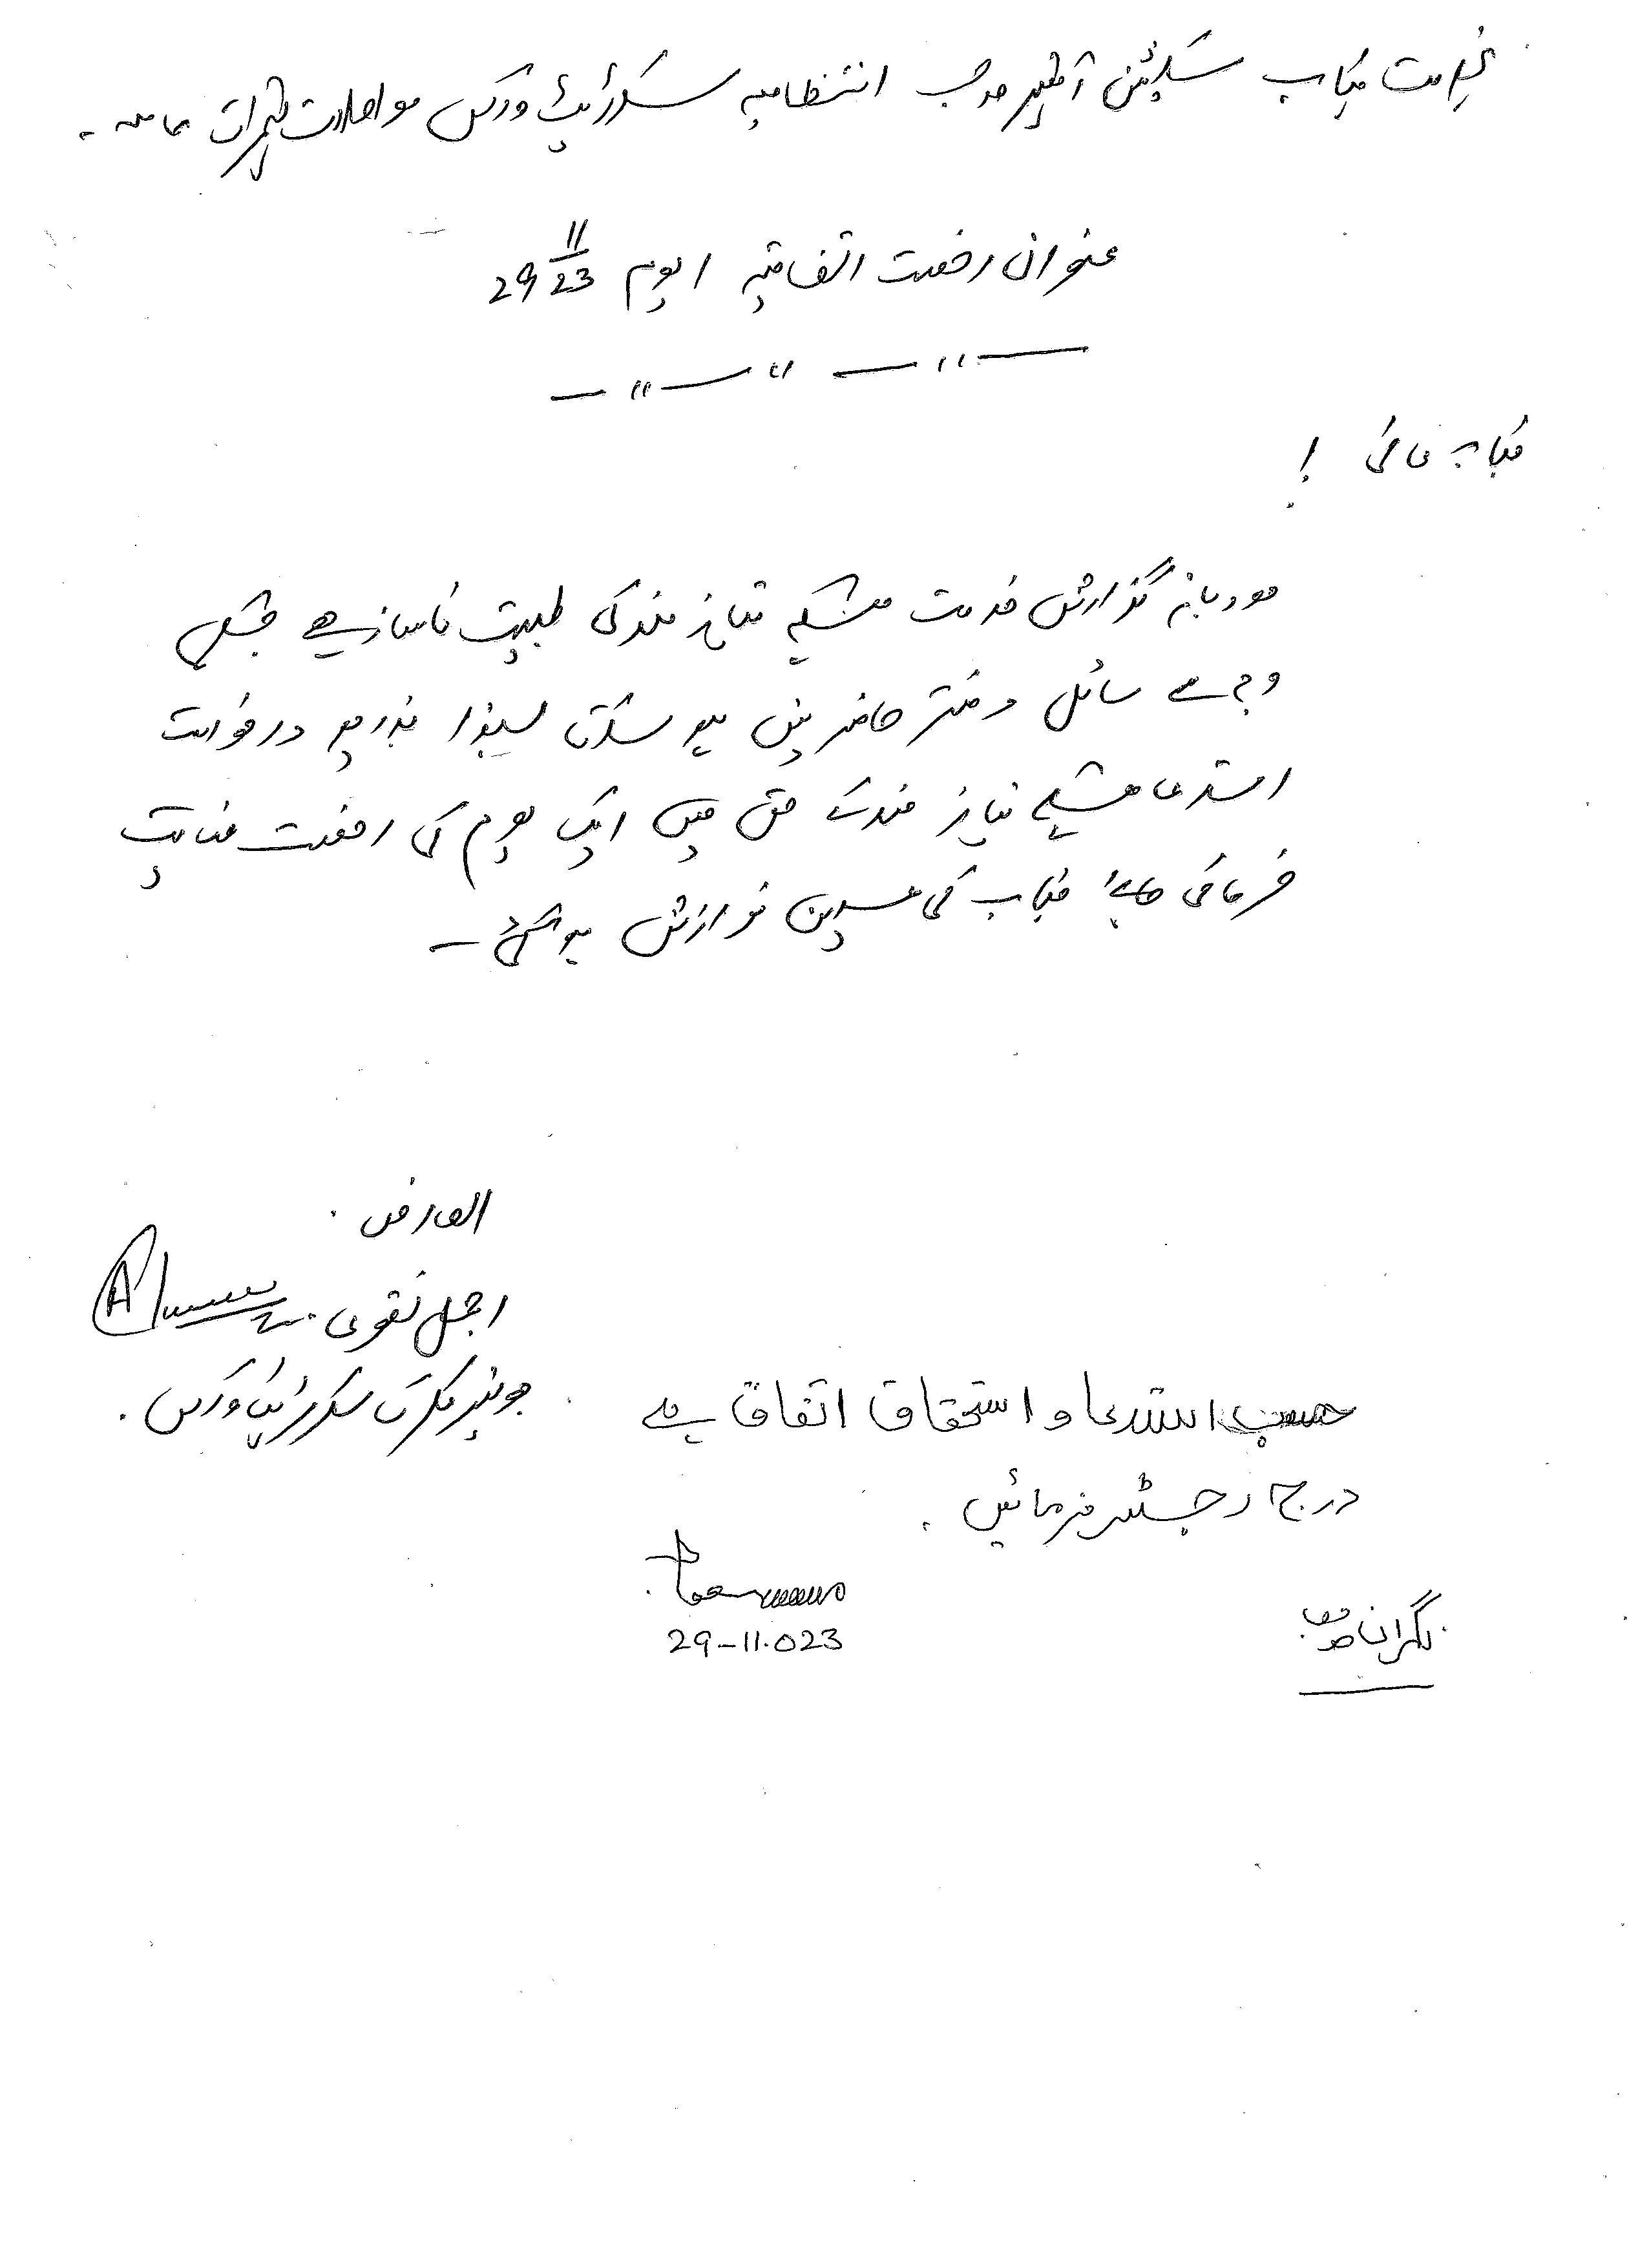 بخدمت جناب سیکشن آفیسر صاحب انتظامیہ سیکرٹریٹ ورکس مواصلات تعمیرات عامہ۔
عنوان رخصت اتفاقیہ 1 یوم 29 11/23
جناب عالی !
مودبانہ گزارش خدمت ہیکہ نیاز مند کی طبیت ناساز ہے جسکی
وجہ سے سائل دفتر حاضر نہیں ہو سکتا لہذا بذریعہ درخواست
استدعا ہیکہ نیاز مند کے حق میں ایک یوم کی رخصت عنایت
فرمائی جائے جناب کی عین نوازش ہو گی۔
العارض
اجمل نقوی
جونیر کلرک سیکرٹریٹ ورکس
حسب استدعا و استحقاق اتفاقیہ
درج رجسٹر فرمائیں
29-11.023
نگران صاحب